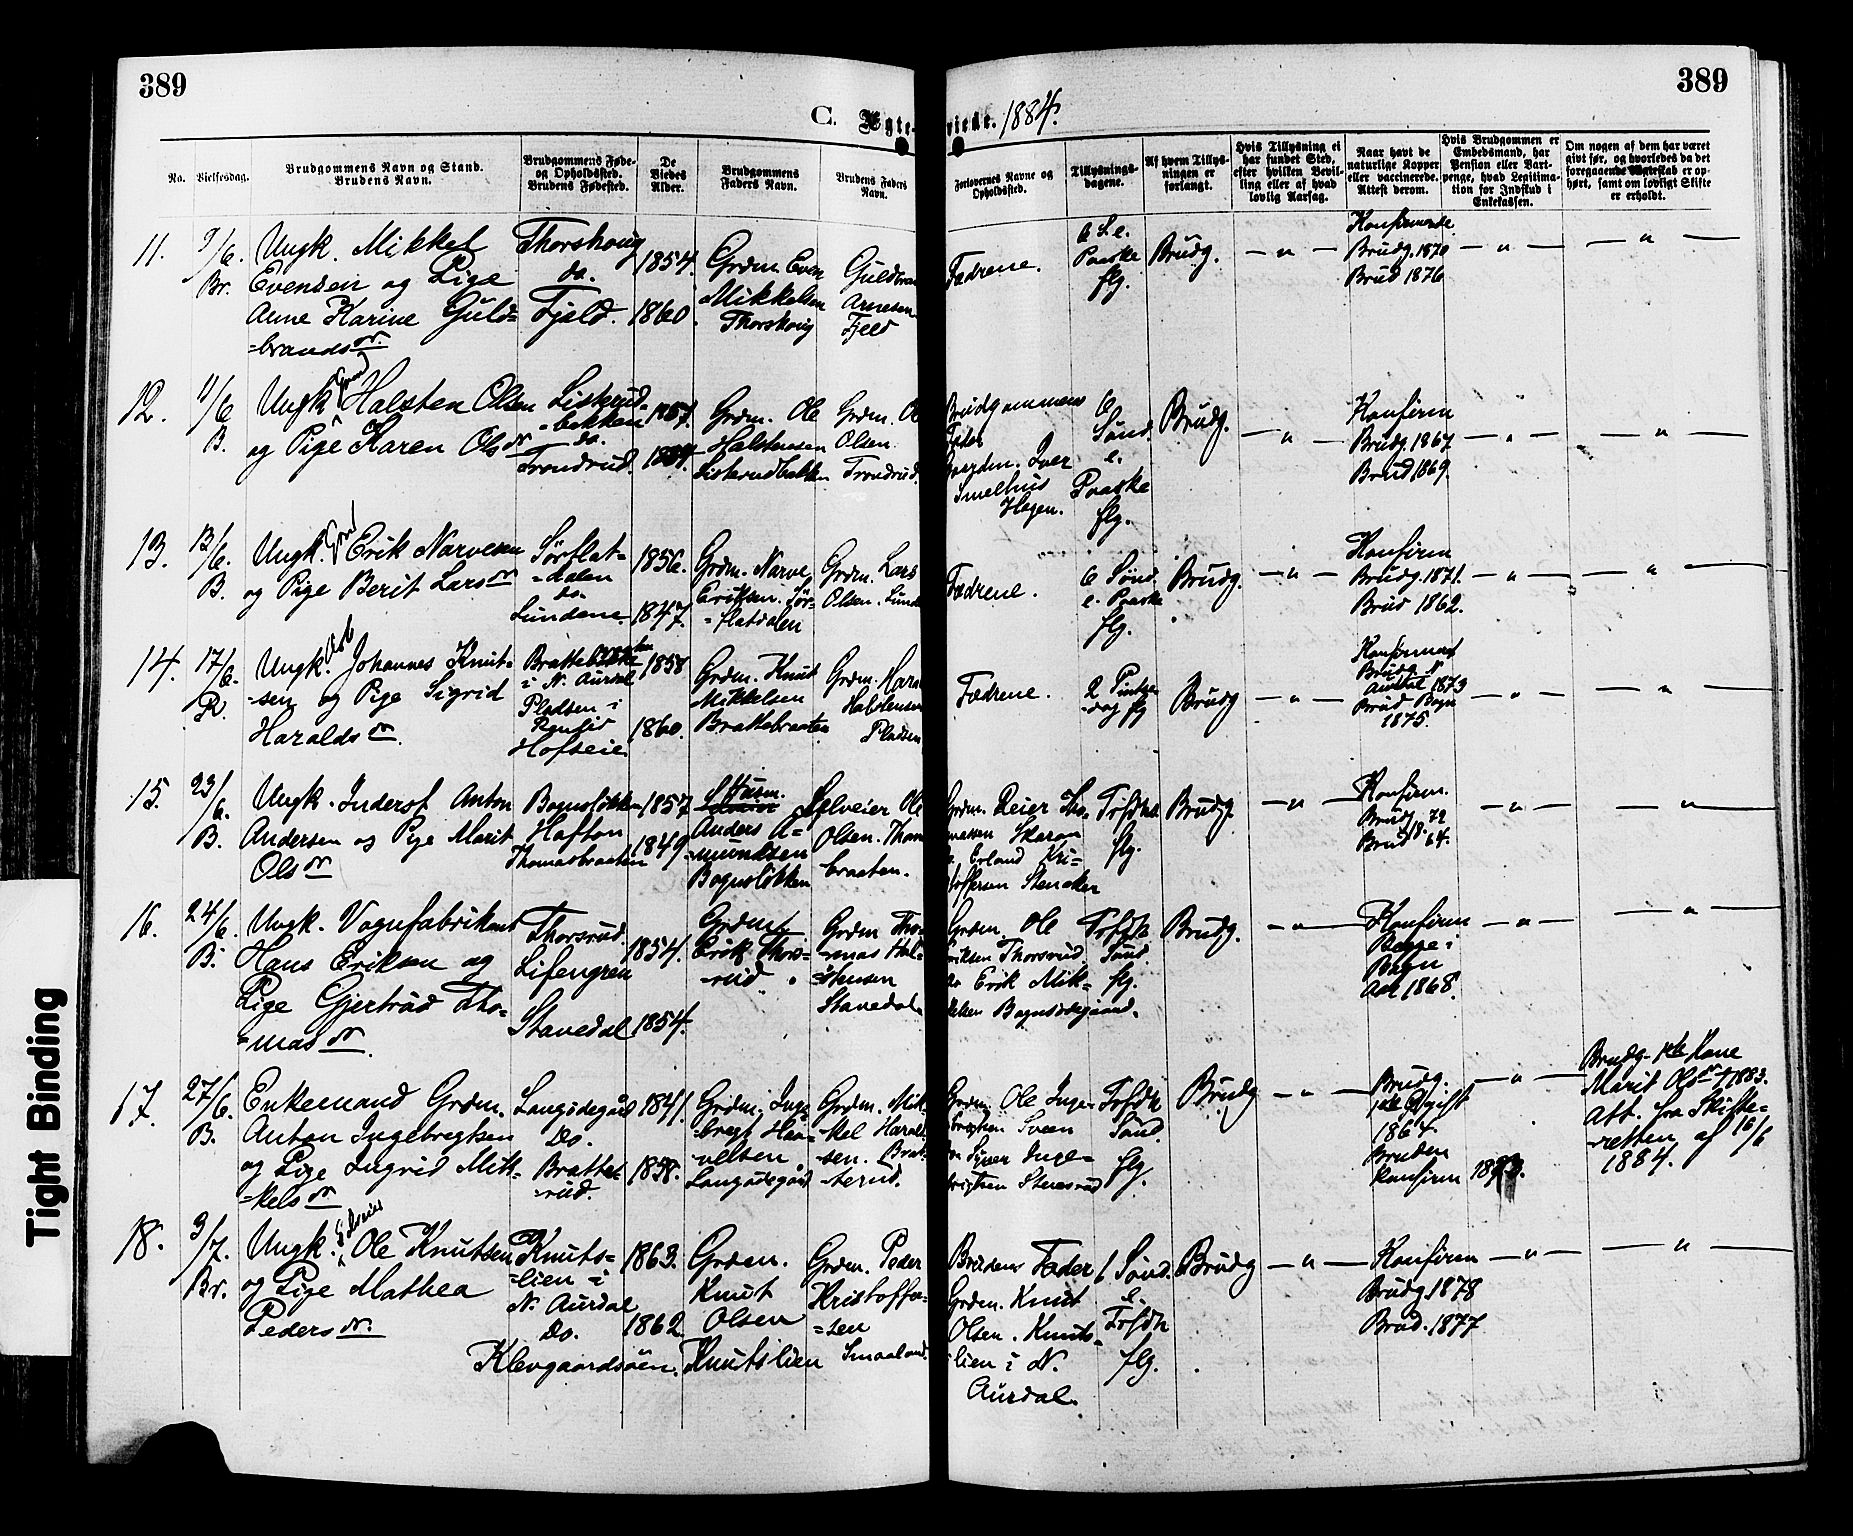 389
389
C. Ægte-
viede. 1884.
No.
Vielsesdag.
Brudgommens Navn og Stand.
Brudens Navn.
Brudgommens Føde-
og Opholdssted.
Brudens Fødested.
De
Viedes
Alder.
Brudgommens
Faders Navn.
Brudens Faders
Navn.
Forlovernes Navne og
Opholdssted.
Tillysnings-
dagene.
Af hvem Tillys-
ningen er
forlangt.
Hvis Tillysning ei
har fundet Sted,
efter hvilken Bevil-
ling eller af hvad
lovlig Aarsag.
Naar havt de
naturlige Kopper
eller vaccinerede.
Attest derom.
Hvis Brudgommen er
Embedsmand, har
Pension eller Vart-
penge, hvad Legitima-
tion for Indskud i
Enkekassen.
Om nogen af dem har været
givt før, og hvorledes da det
foregaaende Ægteskab er op-
hørt, samt om lovligt Skifte
er erholdt.
11.
9/6.
Br.
Ungk. Mikkel
Evensen og Pige
Anne Karine Guld=
=brandsdr.
Thorshoug
do.
Fjeld.
1854.
1860.
Grdm. Even
Mikkelsen
Thorshoug
Guldbran
Arnesen
Fjeld
Fædrene.
6 S. e.
Paaske
flg.
Brudg.
— " —
Konfirmerde
Brudg. 1870
Brud 1876
— " —
— " —
12.
11/6
B.
Ungk. Grdm Halsten Olsen
og Pige Karen Olsdr
Liskrud=
=bekken
do.
Trondrud.
Grdm. Ole
Halstensen
Liskrudbekken
Grdm. Ol
Olsen
Trondrud.
Brudgommens
Fader
Gaardm. Iver
Smelhus
Hagen.
6
Sønd.
e.
Paaske
flg.
Brudg.
— " —
Konfirm
Brudg. 1867
Brud 1869.
— " —
— " —
13.
13/6.
B.
Ungk. Grdm Erik Narvesen
og Pige Berit Larsdr
Sørflat=
=dalen
do.
Lundene.
1856.
1847.
Grdm. Narve
Eriksen. Sør=
=flatdalen
Grdm. Lars
Olsen. Lunde
Fædrene.
6 Sønd.
e. Paaske
flg.
Brudg.
— " —
Konfirm
Brudg. 1871.
Brud 1862.
— " —
— " —
14.
17/6.
R.
Ungk. Johannes Knut=
=sen og Pige Sigrid
Haraldsdr.
Brattebraaten
i N. Aurdal
Pladsen i
Hofseie
1858
1860.
Grdm. Knut
Mikkelsen
Brattebraaten
Grdm. Hara
Halstensen
Pladsen
Fædrene.
2 Pintse
=dag flg
Brudg
— " —
Konfirmert
Brudg N
Aurdal 1873
Brud Bagn
1875.
— " —
— " —
15.
23/6.
B.
Ungk. Inderst Anton
Andersen og Pige Marit
Olsdr
Bagnsløkken
Hafton
Thomasbraaten
1857
1849
Husm.
Anders A=
=mundsen
Bagnsløkken
Selveier Ole
Olsen. Thom
braaten.
Grdm. Reier Tho-
massen Skaron
Erland Kri=
stoffersen Stenaker
Trefdhs
flg.
Brudg.
— " —
Konfirm.
Brudg 18.72
Brud 64.
— " —
— " —
16.
24/6.
B.
Ungk. Vognfabrikant
Hans Eriksen og
Pige Gjertrud Tho=
=masdr.
Thorsrud.
Lifengren
Stavedal
1854.
1854.
Grdmd
Erik Thors=
=rud.
Grdm Tho=
=mas Hal=
=stensen
Stavedal.
Grdm. Ole
Eriksen Thorsrud.
do Erik Mik=
kelsen Bagnsødegaard.
Trefdh
Sønd.
flg.
Brudg.
— " —
Konfirm
Begge i
Bagn
Aar 1868.
— " —
— " —
17.
27/6.
B.
Enkemand Grdm.
Anton Ingebregtsen
og Pige Ingrid Mik=
=kelsdr
Langødegård
Do.
Bratte=
=rud.
1841.
1858.
Grdm. Inge=
bregt Han=
=velsen
Langødegård
Grdm. Mik=
kel Harald
=sen. Brat=
=terud.
Grdm. Ole Inge=
brigtsen Sveen
do Syver Inge=
brigtsen Stensrud
Trefdh
Sønd.
flg.
Brudg
— " —
Brudg.
1ste G gift
1864.
Bruden
konfirm 1873.
— " —
Brudg. 1ste Kone
Marit Olsdr † 1883.
Att. fra Skifte=
=retten af 16/6
1884.
18.
3/7.
Br.
Ungk. Selveier Ole Knutsen
og Pige Mathea
Pedersdr.
Knuts=
=lien i
N. Aurdal
Do.
Klevgaardsøen.
1863.
1862
Grdm.
Knut
Olsen
Knutslien
Grdm. Peder
Kristoffer=
=sen
Smaaland.
Brudens Fader
Grdm. Knut
Olsen. Knuts=
lien i N.
Aurdal.
1 Sønd.
e.
Trefdh
flg.
Brudg
— " —
Konfirm
Brudg 1878
Brud. 1877
— " —
— " —
Tight Binding